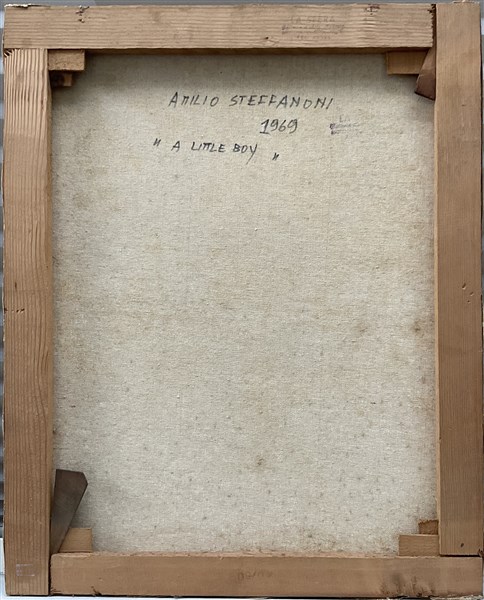 ATTILIO STEFFANONI
1969
" A LITTLE BOY "